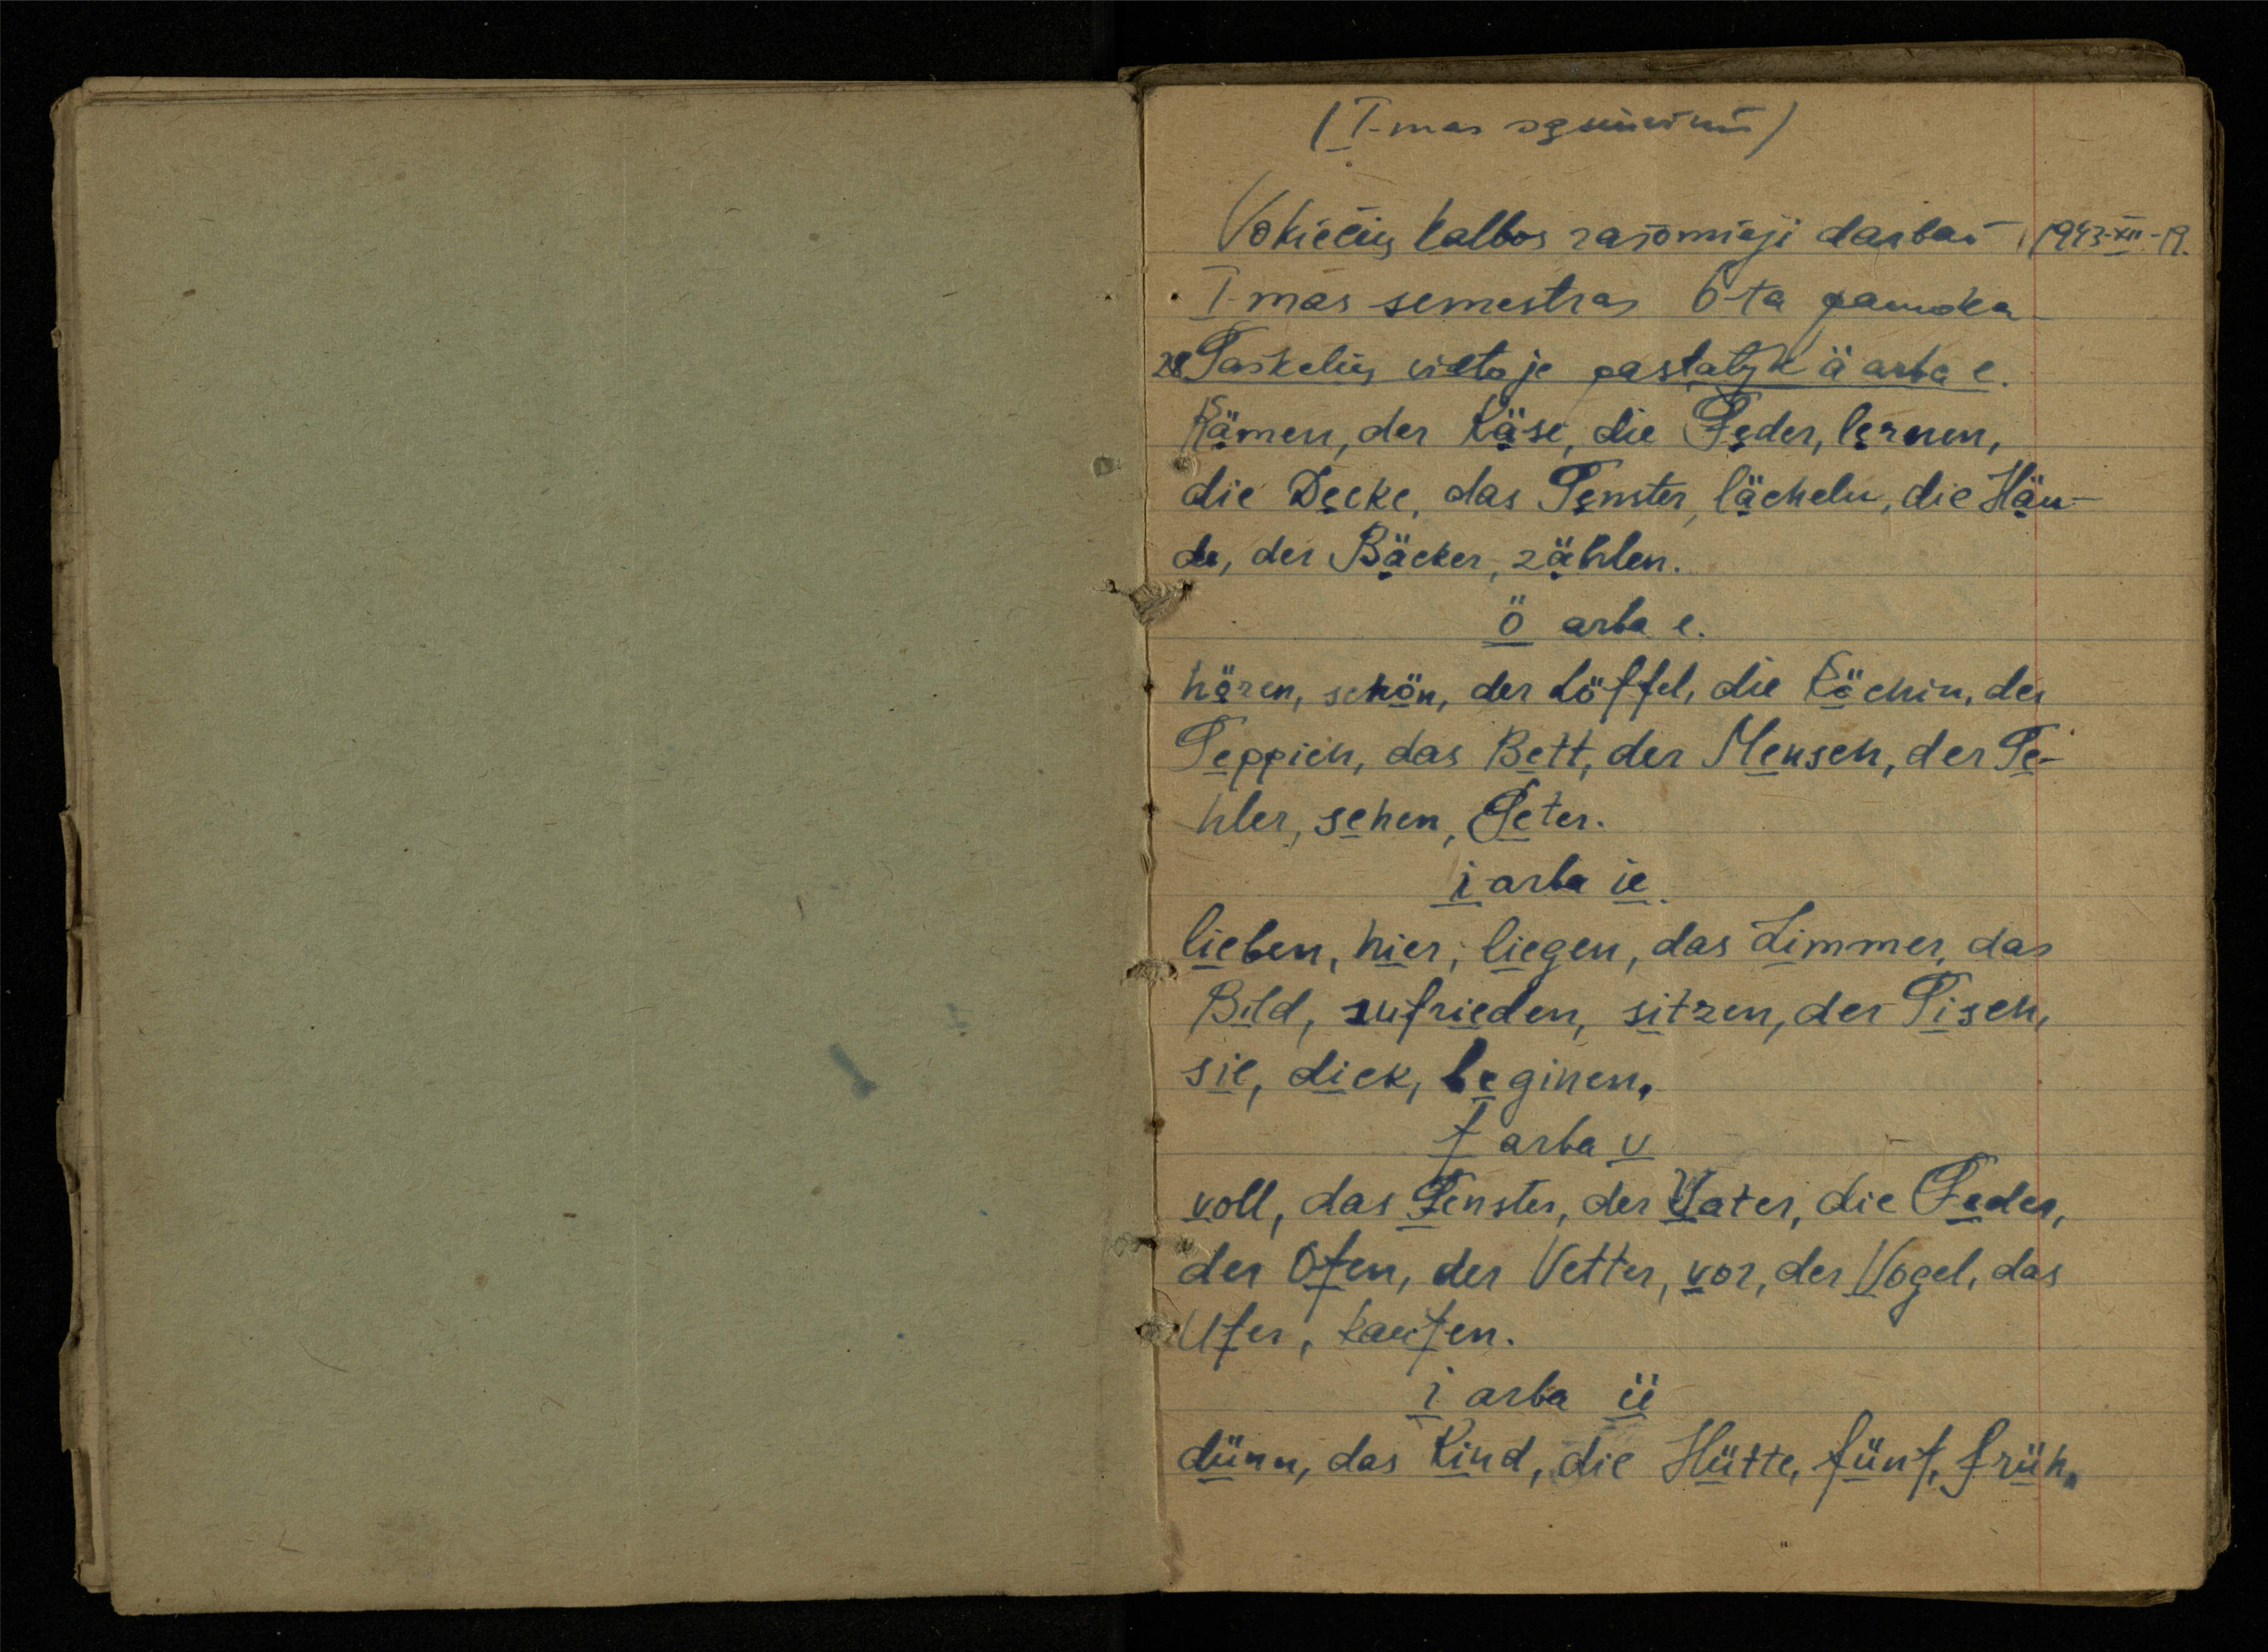 (I-mas sąsiuvinis)
Vokiečių kalbos rašomieji darbai 1943-XII-19.
I-mas semestras 6-ta pamoka
28 Taškelių vietoje pastatyk ä arba e.
Kämen, der Käse, die Feder, lernen,
die Decke, das Fenster, lächeln, die Hän-
de, der Bäcker, zählen.
ö arba e.
hören, schön, der Löffel, die Köchin, der
Teppich, das Bett, der Mensch, der Fe-
hler, sehen, Peter.
i arba ie.
lieben, hier, liegen, das Zimmer, das
Bild, zufrieden, sitzen, der Tisch,
sie, dick, beginen.
f arba v
voll, das Fenster, der Vater, die Feder,
der Ofen, der Vetter, vor, der Vogel, das
Ufer, kaufen.
i arba ü
dünn, das Kind, die Hütte, fünf, früh,